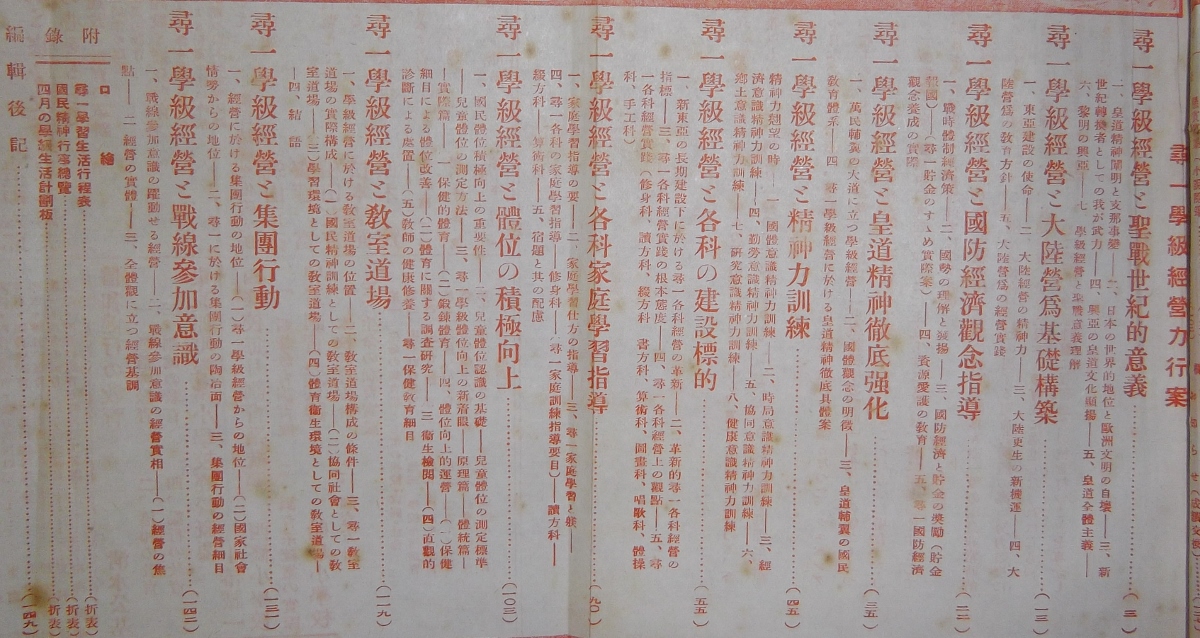 尋一學級經營力行案
尋一學級經營と聖戰世紀的意義……（三）
一、皇道精神闡明と支那事變　二、日本の世界的地位と歐洲文明の自壞――三、新
世紀轉換者としての我が武力――四、興亞の皇道文化顯揚――五、皇道全體主義――
六、黎明の興亞――七　學級經營と聖戰意義理解
尋一學級經營と大陸營爲基礎構築……（一三）
一、東亞建設の使命――二、大陸經營の精神力――三、大陸更生の新機運――四、大
陸營爲の敎育方針――五、大陸營爲の經營實踐
尋一學級經營と國防經濟觀念指導……（二二）
一、戰時體制經濟策――二、國勢の理解と發揚――三、國防經濟と貯金の奬勵（貯金
報國）――（尋一貯金のすゝめ實際案）――四、資源愛護の敎育――五、尋一國防經濟
觀念養成の實際
尋一學級經營と皇道精神徹底强化……（三五）
一、萬民輔翼の大道に立つ學級經營――二、國體觀念の明徵――三、皇道輔翼の國民
敎育體系――四　尋一學級經營に於ける皇道精神徹底具體案
尋一學級經營と精神力訓練……（四五）
精神力翹望の時――一　國體意識精神力訓練――二、時局意識精神力訓練――三、經
濟意識精神力訓練――四、勤勞意識精神力訓練――五、協同意識精神力訓練――六、
鄕土意識精神力訓練――七、硏究意識精神力訓練――八、健康意識精神力訓練
尋一學級經營と各科の建設標的……（五五）
一、新東亞の長期建設下に於ける尋一各科經營の革新――二、革新的尋一各科經營の
指標――三、尋一各科經營實踐の根本態度――四、尋一各科經營上の觀點――五、尋
一各科經營實踐（修身科、讀方科、綴方科、書方科、算術科、圖畫科、唱歌科、體操
科、手工科）
尋一學級經營と各科家庭學習指導……（九〇）
一、家庭學習指導の要――二、家庭學習仕方の指導――三、尋一家庭學習と躾――
四、尋一各科の家庭學習指導――修身科――（尋一家庭訓練指導要目）――讀方科――
綴方科――算術科――五、宿題と其の配慮
尋一學級經營と體位の積極向上……（一〇三）
一、國民體位積極向上の重要性――二、兒童體位認識の基礎――兒童體位の測定標準
――兒童體位の測定方法――三、尋一學級體位向上の新着眼――原理篇――體統篇――
實際篇――（一）保健的體育――（二）鍛鍊體育――四、體位向上的運營――（一）保健
細目による體位改善――（二）體育に關する調査硏究――（三）衞生檢閱――（四）直觀的
診斷による處置――（五）敎師の健康修養――尋一保健敎育細目
尋一學級經營と敎室道場……（一一九）
一、學級經營に於ける敎室道場の位置――二、敎室道場構成の條件――三、尋一敎室
道場の實際構成――（一）國民精神訓練としての敎室道場――（二）協同社會としての敎
室道場――（三）學習環境としての敎室道場――（四）體育衞生環境としての敎室道場―
―四、結語
尋一學級經營と集團行動……（一三一）
一、經營に於ける集團行動の地位――（一）尋一學級經營からの地位――（二）國家社會
情勢からの地位――二、尋一に於ける集團行動の陶冶面――三、集團行動の經營細目
尋一學級經營と戰線參加意識……（一四二）
一、戰線參加意識の躍動せる經營――二、戰線參加意識の經營實相――（一）經營の焦
點――（二）經營の實體――三、全體觀に立つ經營基調
附錄
口繪
尋一學習生活行程表……（折表）
國民精神行事總覽……（折表）
四月の學級生活計劃板……（折表）
編輯後記……（一四九）